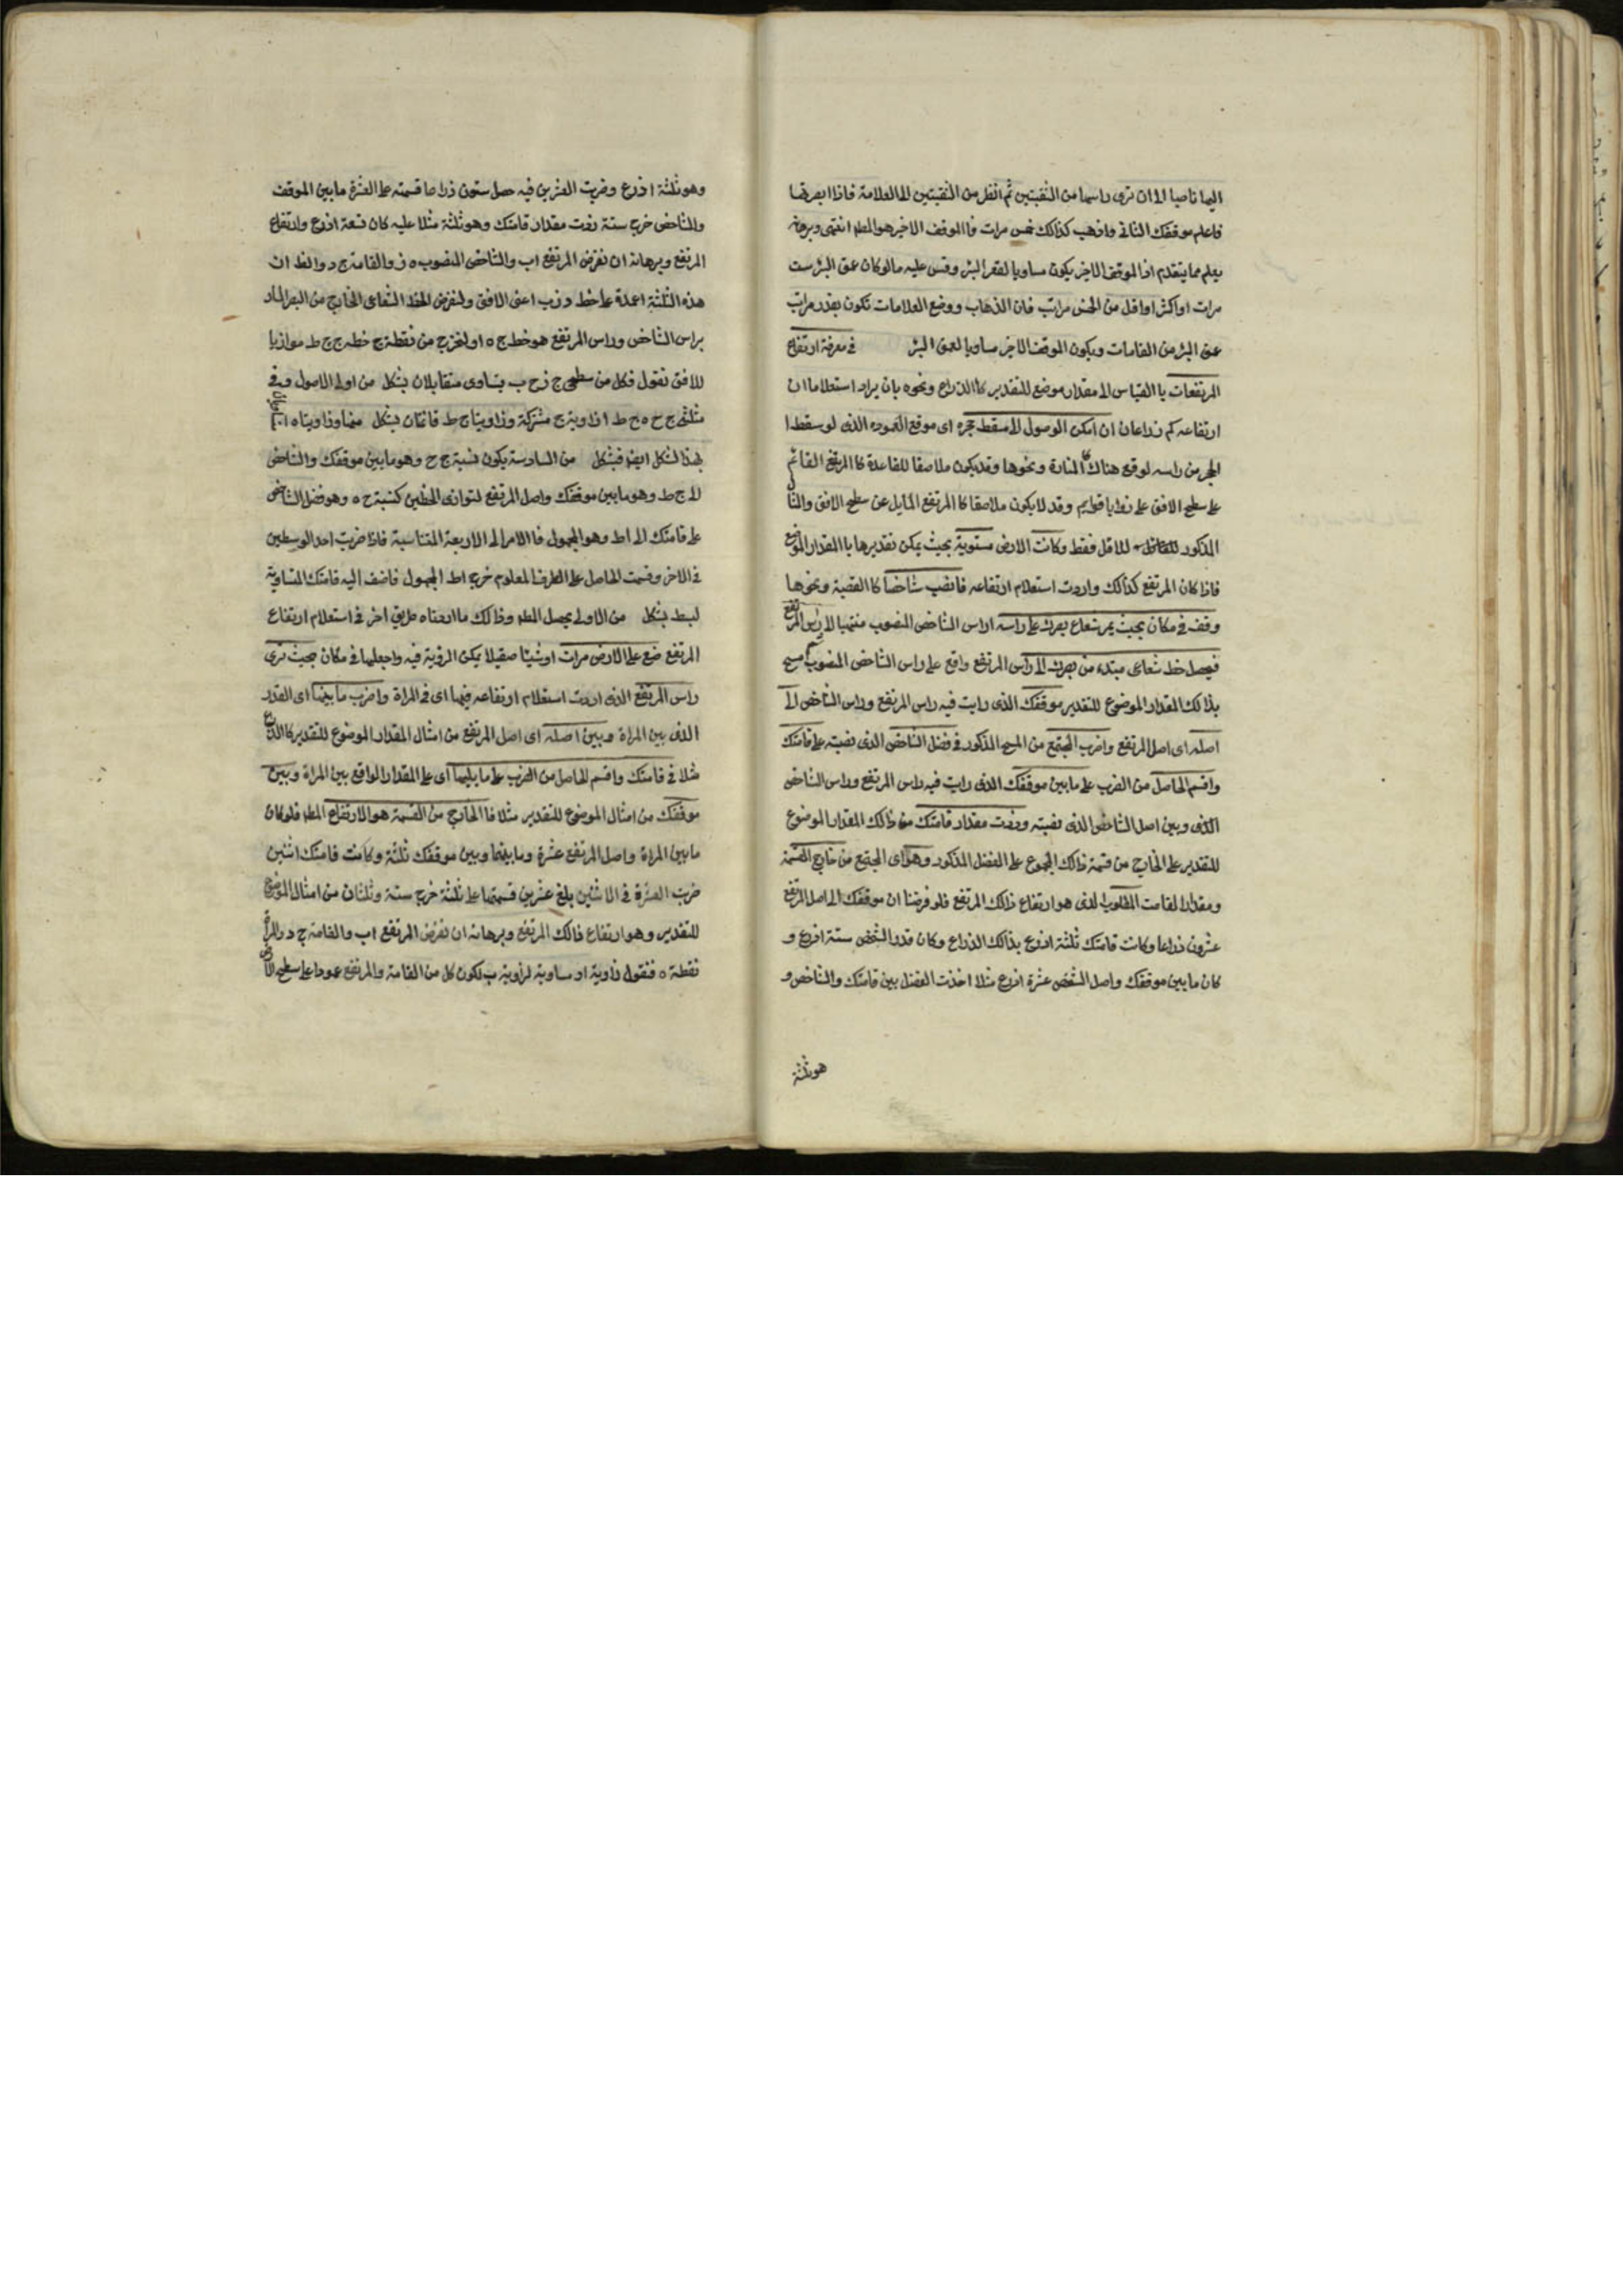 اليها ناصيا الى ان ترى راسها من الثقبتين ثم انظر من الثقبتين الى العلامة فاذا ابصرتها
فاعلم موقفك الثانى واذهب كذالك خمس مرات فاالموقف الاخير هو المطلوب انتهى وبرهانه
يعلم مما يتقدم اذ الموقف الاخير يكون مساويا لقعر البئر وقس عليه مالوكان عمق البئر ست
مرات او اكثر او اقل من الخمس مراتب فان الذهاب ووضع العلامات تكون بقدر مراتب
عمق البئر من القامات ويكون الموقف الاخر مساويا لعمق البئر في معرفة ارتفاع
المرتفعات باالقياس الى مقدار موضع للتقدير كاالذراع ونحوه بان يراد استعلام ان
ارتفاعه كم ذراعا ان امكن الوصول الى مسقط حجره اى موقع العموده الذى لو سقط ا
لحجر من راسه لوقع هناك المنارة ونحوها وقد يكون ملاصقا للقاعدة كا المرتفع القائم
على سطح الافق على زوايا قوايم وقد لا يكون ملاصقا كا المرتفع المايل عن سطح الافق
المذكور للاقل فقط وكانت الارض مستوية بحيث يمكن تقديرها باالمقدار الموضع
فاذا كان المرتفع كذالك واردت استعلام ارتفاعه فانصب شاخصا كا القصبة ونحوها
وقف في مكان بحيث يمر شعاع بصرك على راسه اراس الشاخص المنصوب منتهيا الى راس المرتفع
فيحصل خط شعاعى مبتدء من بصرك الى راس المرتفع واقع على راس الشاخص المنصوب ثم امسح
بذالك المقدار الموضوع للتقدير موقفك الذى رايت فيه راس المرتفع وراس الشاخص الى
اصله اى اصل المرتفع واضرب المجتمع من المسح المذكور في فضل الشاخص الذى نصبته على قامتك
واقسم الحاصل من الضرب على ما بين موقفك الذى رايت فيه راس المرتفع وراس الشاخص
الذى وبين اصل الشاخص الذى نصبته وزدت مقدار قامتك من ذالك المقدار الموضوع
للتقدير على الخارج من قسمة ذالك المجموع على الفضل المذكور وهو اى المجتمع من خارج القسمة
ومقدار القامت المطلوب الذى هو ارتفاع ذالك المرتفع فلو فرضنا ان موقفك الى اصل المرتفع
عشرون ذراعا وكانت قامتك ثلثة اذرع بذالك الذراع وكان قدر الشخص ستة اذرع و
كان ما بين موقفك واصل الشخص عشرة اذرع مثلا اخذت الفضل بين قامتك والشاخص و
هو ثلثة
وهو ثلثة اذرع وضربت العشرين فيه حصل ستون ذراعا قسمته على العشرة ما بين الموقف
والشاخص خرج ستة زدت مقدار قامتك وهو ثلثة مثلا عليه كان تسعة اذرع وارتفاع
المرتفع وبرهانه ان نفرض المرتفع اب والشاخص المنصوب ه ز والقامة ج د والظ ان
هذه الثلثة اعمدة على خط د زب اعنى الافق ولنفرض الخط الشعاعى الخارج من البصر المار
براس الشاخص وراس المرتفع هو خط ج ه ا ولنخرج من نقطة ج خط ج ح ط موازيا
للافق نقول فكل من سطحى ج ز ح ب يتساوى متقابلان بشكل من اولى الاصول وفى
مثلثى ج ح ه ج ط ا زاوية ج مشتركة وزاويتا ح ط قائمتان بشكل منها وزاويتاه ا
بهذ الشكل ايضا فبشكل من السادسة يكون نسبة ج ح وهو ما بين موقفك والشاخص
الى ج ط وهو ما بين موقفك واصل المرتفع لتوازى الخطين كنسبة ح ه وهو فضل الشاخص
على قامتك الى اط وهو المجهول فاالامر الى الاربعة المتناسبة فاذا ضربت احد الوسطين
في الاخر وقسمت الحاصل على الطرف المعلوم خرج اط المجهول فاضف اليه قامتك المتساوية
لبط بشكل من الاولى يحصل المطلوب وذالك ما اردناه طريق اخر في استعلام ارتفاع
المرتفع ضع على الارض مرات اوشيئا صقيلا يمكن الرؤية فيه واجعلها في مكان بحيث ترى
راس المرتفع الذى اردت استعلام ارتفاعه فيها اى في المراة واضرب ما بينهما اى القدر
الذى بين المراة وبين اصله اى اصل المرتفع من امثال المقدار الموضوع للتقدير كاالذراع
مثلا في قامتك واقسم الحاصل من الضرب على ما بينها اى على المقدار الواقع بين المراة وبين
موقفك من امثال الموضوع للتقدير مثلا فا الخارج من القسمة هو الارتفاع المطلوب فلوكان
مابين المراة واصل المرتفع عشرة وما بينها وبين موقفك ثلثة وكانت قامتك اثنين
ضربت العشرة في الاثنين بلغ عشرين قسمتها على ثلثة خرج ستة وثلثان من امثال الموضوع
للتقدير وهو ارتفاع ذالك المرتفع وبرهانه ان نفرض المرتفع اب والقامة ج د والمرأة
نقطة ه فنقول زاوية اه مساوية لزاوية ب لكون كل من القامة والمرتفع عمودا على سطح الارض